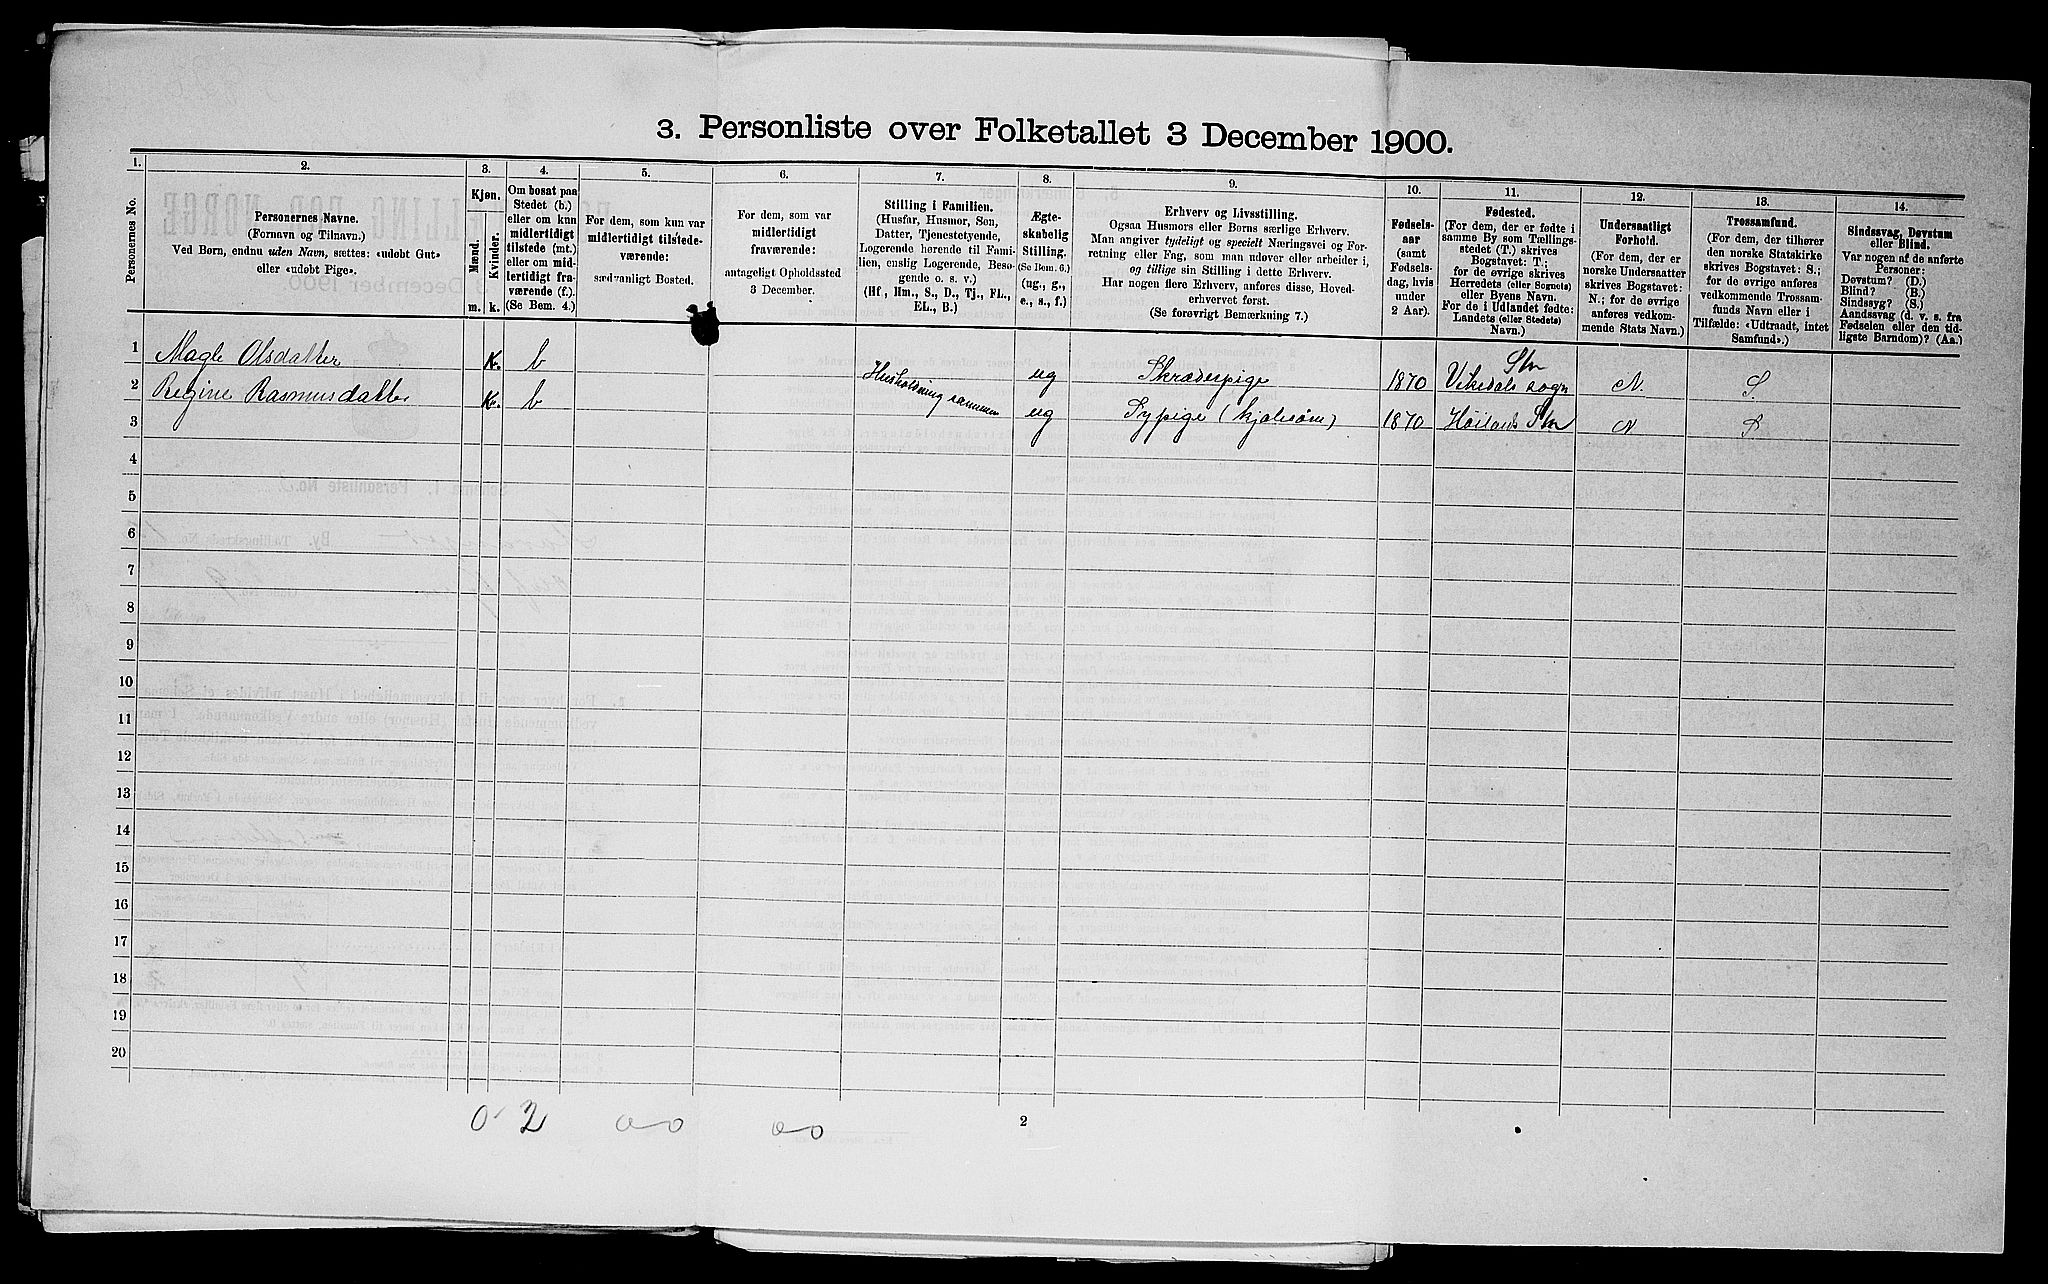 3. Personliste over Folketallet 3 December 1900.
1.
2.
3.
4.
5.
6.
7.
8.
9.
10.
11.
12.
13.
14.
Personernes No.
Personernes Navne.
(Fornavn og Tilnavn.)
Ved Børn, endnu uden Navn, sættes: «udøbt Gut»
eller «udøbt Pige».
Kjøn.
Mænd.
Kvinder.
m.
k.
Om bosat paa
Stedet (b.)
eller om kun
midlertidigt
tilstede (mt.)
eller om mid-
lertidigt fra-
værende (f.).
(Se Bem. 4.)
For dem, som kun var
midlertidigt tilstede-
værende:
sædvanligt Bosted.
For dem, som var
midlertidigt
fraværende:
antageligt Opholdssted
3 December.
Stilling i Familien.
(Husfar, Husmor, Søn,
Datter, Tjenestetyende,
Logerende hørende til Fami-
lien, enslig Logerende, Besø-
gende o. s. v.)
(Hf, Hm., S., D., Tj., FL.,
EL., B.)
Ægte-
skabelig
Stilling.
(Se Bem. 6.)
(ug., g.,
e., s., f.)
Erhverv og Livsstilling.
Ogsaa Husmors eller Børns særlige Erhverv.
Man angiver tydeligt og specielt Næringsvei og For-
retning eller Fag, som man udøver eller arbeider i,
og tillige sin Stilling i dette Erhverv.
Har nogen flere Erhverv, anføres disse, Hoved-
erhvervet først.
(Se forøvrigt Bemærkning 7.)
Fødsels-
aar
(samt
Fødsels-
dag, hvis
under
2 Aar).
Fødested.
(For dem, der er fødte i
samme By som Tællings-
stedet (T.) skrives
Bogstavet: T.;
for de øvrige skrives
Herredets (eller Sognets)
eller Byens Navn.
For de i Udlandet fødte:
Landets (eller Stedets)
Navn.)
Undersaatligt
Forhold.
(For dem, der er
norske Undersaatter
skrives Bogstavet:
N.; for de øvrige
anføres vedkom-
mende Stats Navn.)
Trossamfund.
(For dem, der tilhører
den norske Statskirke
skrives Bogstavet: S.;
for de øvrige anføres
vedkommende Trossam-
funds Navn eller i
Tilfælde: «Udtraadt, intet
Samfund».)
Sindssvag, Døvstum
eller Blind.
Var nogen af de anførte
Personer:
Døvstum? (D.)
Blind? (B.)
Sindssyg? (S.)
Aandssvag (d. v. s. fra
Fødselen eller den tid-
ligste Barndom)? (Aa.)
1 Magle Olsdatter K. b ug Skræderpige 1870 Stv Vikedals sogn N. S.
2 Regine Rasmusdatter K. b Husholdning sammen ug Sypige (kjolesøm) 1870 Høilands Stv N S
3
4
5
6
7
8
9
10
11
12
13
14
15
16
17
18
19
20
0 2 00 00
2